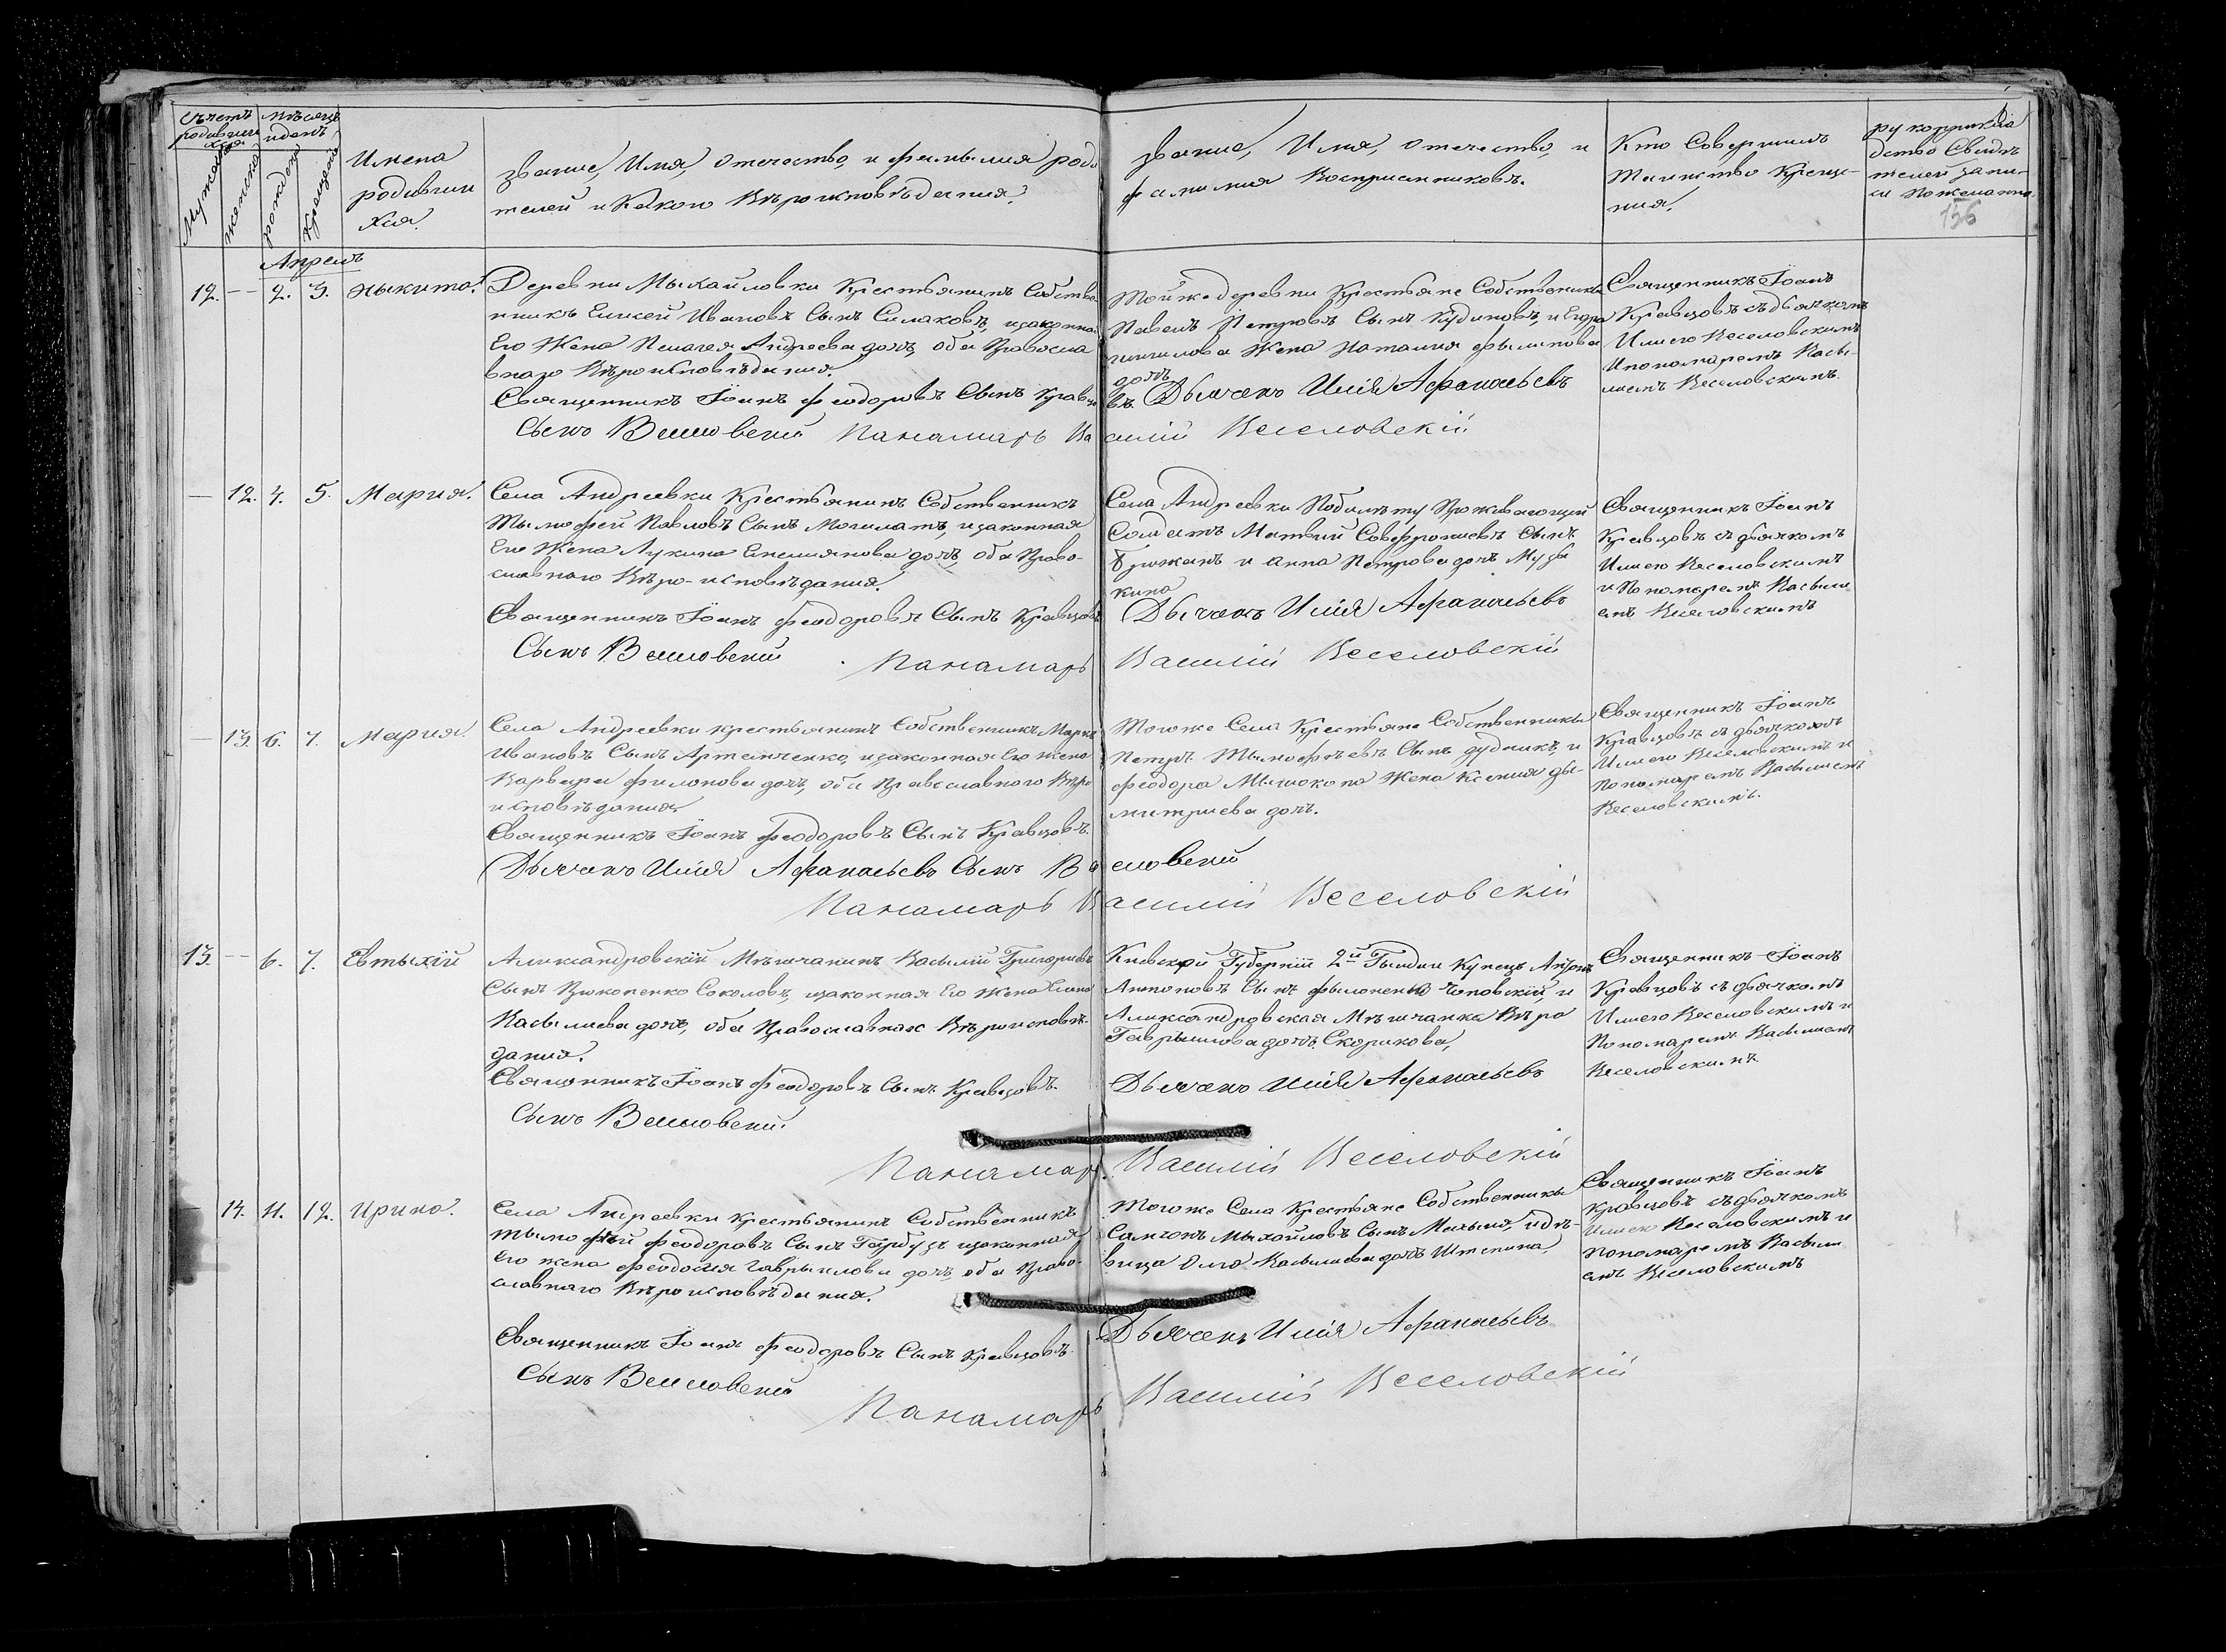 Счетъ родившихся
Мѣсяцъ и день
Мужеска
женска
рождения
Крещения
Имена
родивших
хся.
звание, Имя, отечество, и фамылия роди
телей и Какого Вѣроисповѣдания.
звание, Имя, отечество, и
фамилия Восприемниковъ.
Кто Совершилъ
Таинство Креще-
ния.
дство Свидѣ
телей запи-
си
156
Апрель
12. — 2. 3. Ныкита.
Деревни Мыхайловки Крестьянинъ Собстве
нникъ Елисей Ивановъ Сынъ Силаковъ, изаконна
Его Жена Пелагея Андреева дочь, оба Правосла
внаго Вѣроисповѣдания.
Священникъ Іоанъ Феодоровъ Сынъ Кравцо
Сынъ Веселовский Панамарь Ва
Тойже деревни Крестьяне Собственники
Павелъ Петровъ Сынъ Кудиновъ, и Егора
Жена Наталия Фылипова
дочь
въ. Дьячекъ Илія Афанасьевъ
силій Веселовскій
Священникъ Іоанъ
Кравцовъ съ дьячкомъ
Илиею Веселовскимъ
Ипономаремъ Васы-
лиемъ Веселовскимъ.
— 12. 4. 5. Мария.
Села Андреевки Крестьянинъ Собственникъ
Тымофей Павловъ Сынъ Могилатъ, изаконная
Его Жена Лукина Емелиянова дочь, оба Право-
славнаго Вѣро-исповѣдания.
Священникъ Іоанъ Феодоровъ Сынъ Кравцовъ
Сынъ Веселовский Панамарь
Села Андреевки Побилѣту Проживающий
Солдатъ Матвий Совфрониевъ Сынъ
и Анна Петрова дочь Музы
кина
Дьячекъ Илія Афанасьевъ
Василій Веселовскій
Священникъ Іоанъ
Кравцовъ съ дьячкомъ
Илиею Веселовскимъ
и Пономаремъ Васыли
емъ Веселовскимъ
— 13. 6. 7. Мария.
Села Андреевки крестьянинъ Собственникъ Марко
Ивановъ Сынъ Артемченко, изаконная Его жена
Варвара Филонова дочь, оба Православного Вѣро
исповѣдания.
Священникъ Іоанъ Феодоровъ Сынъ Кравцовъ.
Дьячекъ Илія Афанасьевъ Сынъ Ве
Панамарь В
Тогоже Села Крестьяне Собственникы
Петръ Тымофѣевъ Сынъ дудникъ, и
Феодора Жена Ксения ды-
митриева дочь.
селовский
асилій Веселовскій
Священникъ Іоанъ
Кравцовъ съ дьячкомъ
Илиею Веселовскимъ и
Пономаремъ Васылиемъ
Веселовскимъ.
13. — 6. 7. Евтыхій
Александровский Мѣщчанинъ Васылій Григориевъ
Сынъ Прокопенко Соколовъ, изаконная Его Жена Елена
Васылиева дочь, оба Православнаго Вѣроисповѣ-
дания.
Священникъ Іоанъ Феодоровъ Сынъ Кравцовъ.
Сынъ Веселовский.
Панамарь
Киевской Губерній 2й Гылдии Купецъ Антонъ
Антоновъ Сынъ и
Александровская Мѣщчанка Вѣра
Гаврылова дочь Скорикова,
Дьячекъ Илія Афанасьевъ
Василій Веселовскій
Священникъ Іоанъ
Кравцовъ съ дьячкомъ
Илиею Веселовскимъ и
Пономаремъ Васылиемъ
Веселовскимъ
14. 11. 12. Ирина.
Села Андреевки крестьянинъ Собственникъ
Тымофѣй Феодоровъ Сынъ Гарбузъ изаконная
Его жена Феодосия Гаврылова дочь, оба Право-
славнаго Вѣроисповѣдания.
Священникъ Іоанъ Феодоровъ Сынъ Кравцовъ.
Сынъ Веселовский
Панамарь
Тогоже Села Крестьяне Собственникы
Самсонъ Мыхайловъ Сынъ идѣ-
вица Васылиева дочь
Дьячекъ Илія Афанасьевъ
Василій Веселовскій
Священникъ Іоанъ
Кравцовъ съ дьячкомъ
Илиею Веселовскимъ и
Пономаремъ Васыли
емъ Веселовскимъ